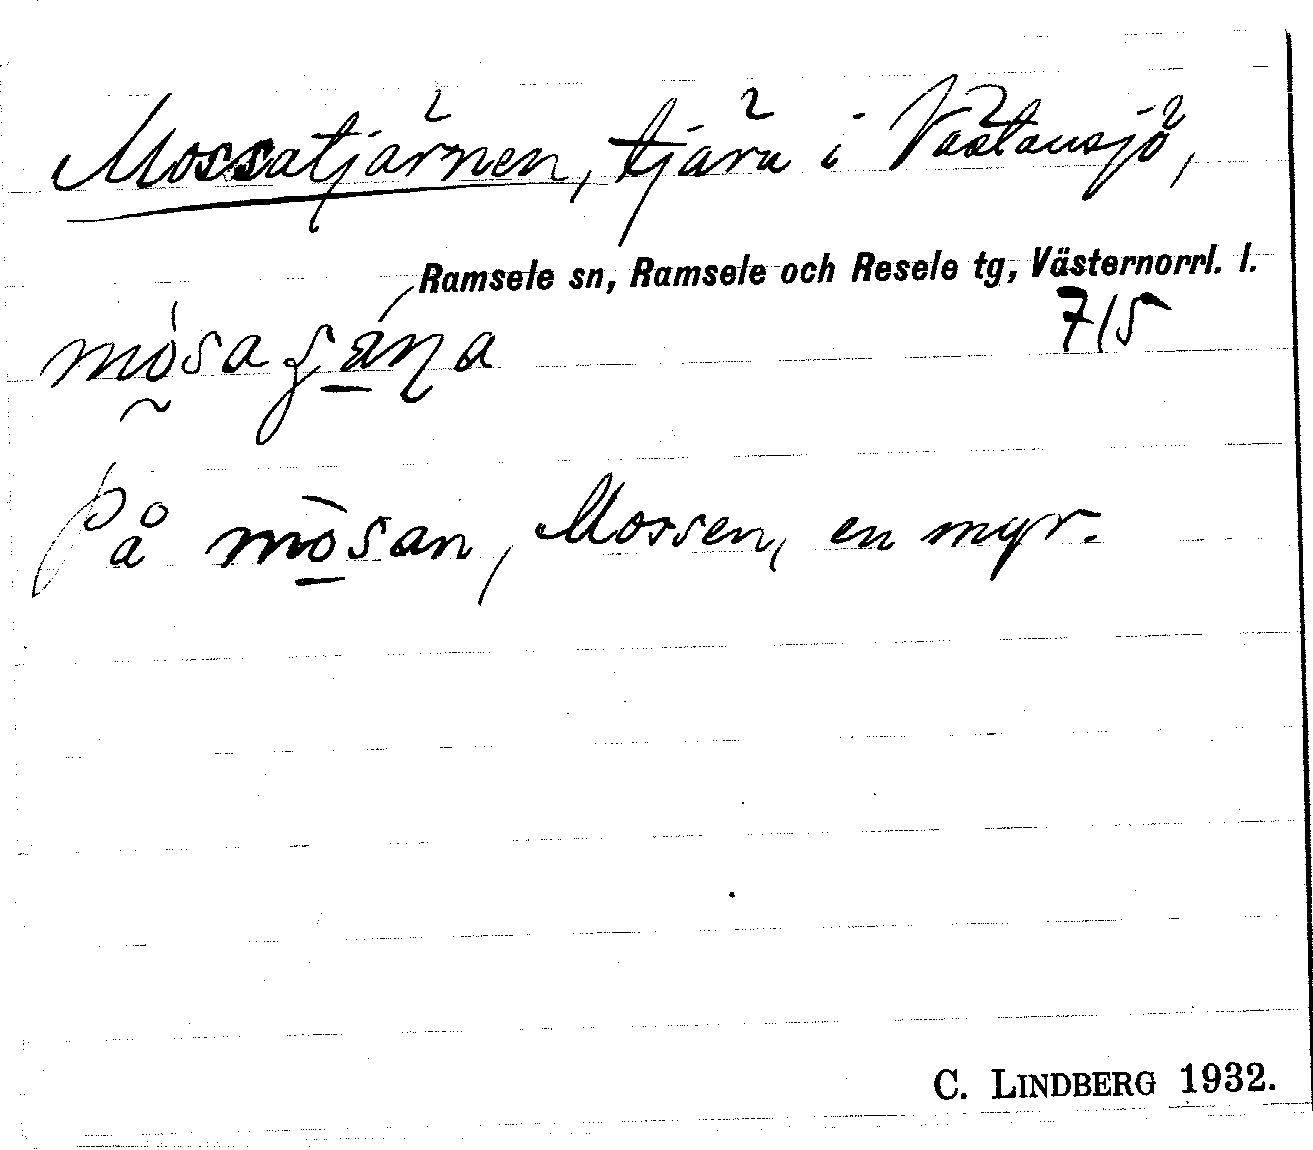 Mossatjärnen, tjärn i Västansjö,
Ramsele sn, Ramsele och Resele tg, Västernorrl. l.
715
På mòsan, Mossen, en myr.
C. LINDBERG 1932.